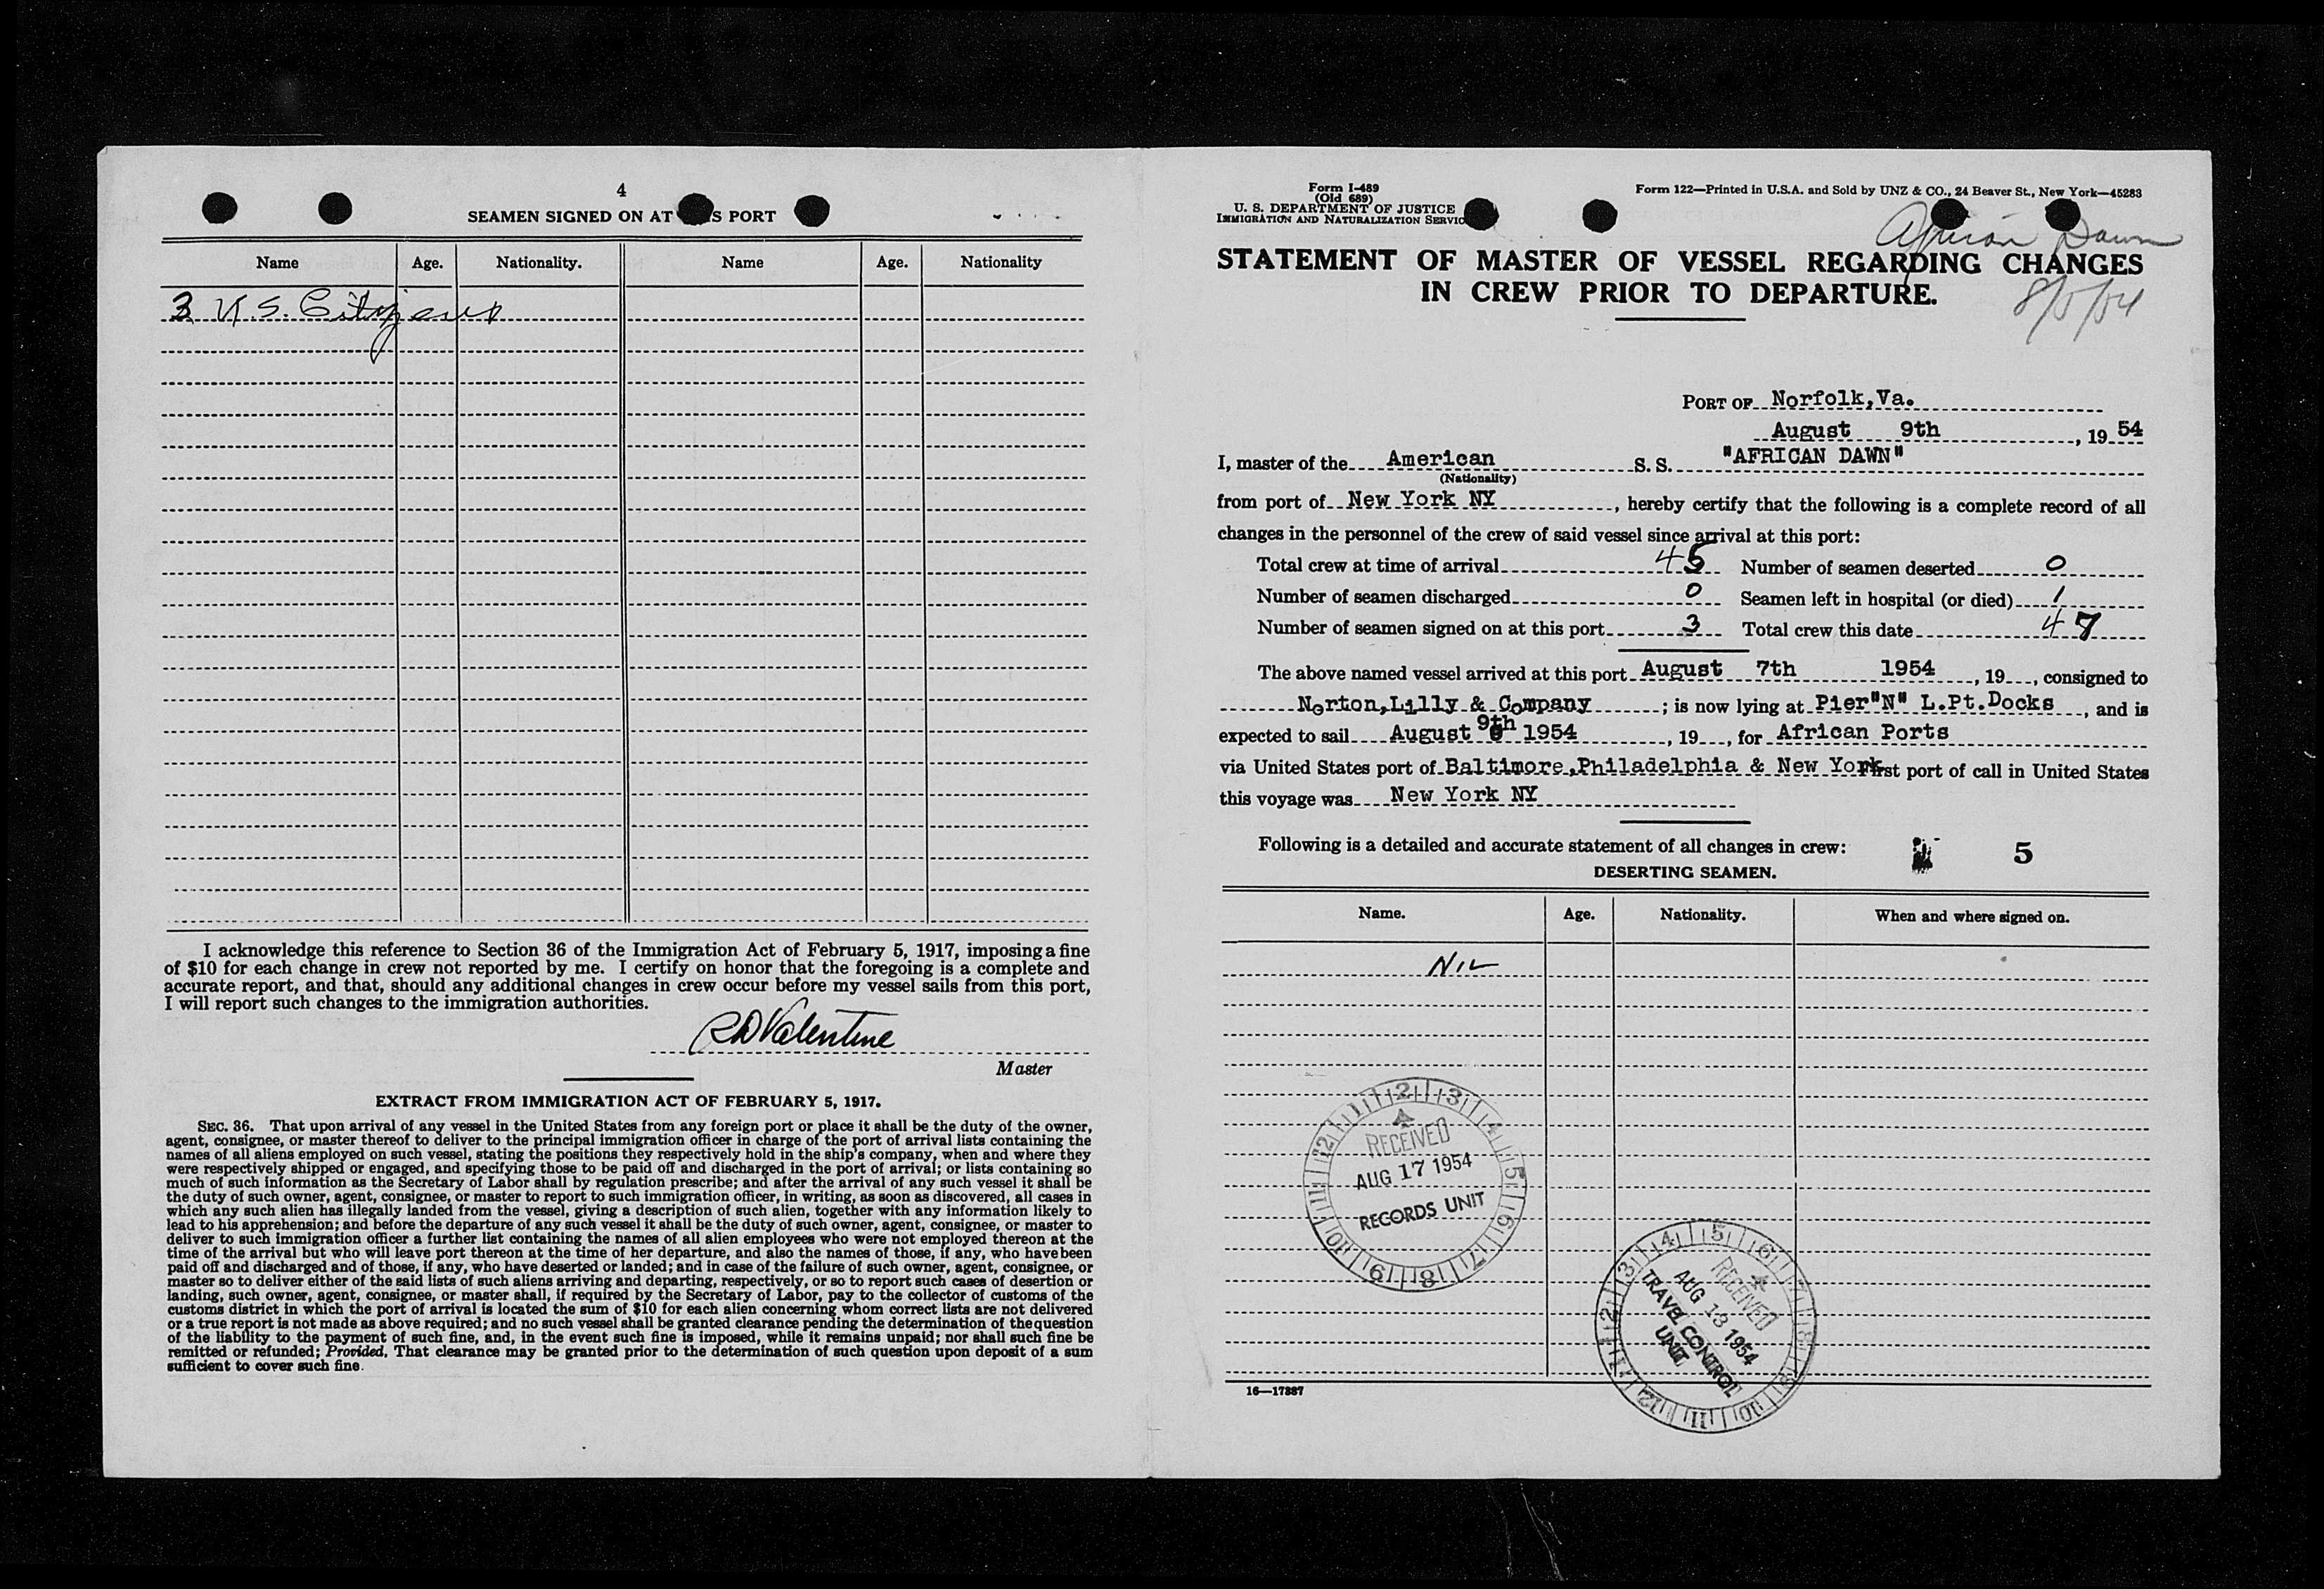 4
SEAMEN SIGNED ON AT S PORT
Name Age. Nationality. Name Age. Nationality
3 U.S. Citizens
I acknowledge this reference to Section 36 of the Immigration Act of February 5, 1917, imposing a fine
of $10 for each change in crew not reported by me. I certify on honor that the foregoing is a complete and
accurate report, and that, should any additional changes in crew occur before my vessel sails from this port,
I will report such changes to the immigration authorities.
RD Valentine
Master
EXTRACT FROM IMMIGRATION ACT OF FEBRUARY 5, 1917.
SEC. 36. That upon arrival of any vessel in the United States from any foreign port or place it shall be the duty of the owner,
agent, consignee, or master thereof to deliver to the principal immigration officer in charge of the port of arrival lists containing the
names of all aliens employed on such vessel, stating the positions they respectively hold in the ship's company, when and where they
were respectively shipped or engaged, and specifying those to be paid off and discharged in the port of arrival; or lists containing so
much of such information as the Secretary of Labor shall by regulation prescribe; and after the arrival of any such vessel it shall be
the duty of such owner, agent, consignee, or master to report to such immigration officer, in writing, as soon as discovered, all cases in
which any such alien has illegally landed from the vessel, giving a description of such alien, together with any information likely to
lead to his apprehension; and before the departure of any such vessel it shall be the duty of such owner, agent, consignee, or master to
deliver to such immigration officer a further list containing the names of all alien employees who were not employed thereon at the
time of the arrival but who will leave port thereon at the time of her departure, and also the names of those, if any, who have been
paid off and discharged and of those, if any, who have deserted or landed; and in case of the failure of such owner, agent, consignee, or
master so to deliver either of the said lists of such aliens arriving and departing, respectively, or so to report such cases of desertion or
landing, such owner, agent, consignee, or master shall, if required by the Secretary of Labor, pay to the collector of customs of the
customs district in which the port of arrival is located the sum of $10 for each alien concerning whom correct lists are not delivered
or a true report is not made as above required; and no such vessel shall be granted clearance pending the determination of the question
of the liability to the payment of such fine, and, in the event such fine is imposed, while it remains unpaid; nor shall such fine be
remitted or refunded; Provided, That clearance may be granted prior to the determination of such question upon deposit of a sum
sufficient to cover such fine.
Form I-489
(Old 689)
U. S. DEPARTMENT OF JUSTICE
IMMIGRATION AND NATURALIZATION SERVIC
Form 122—Printed in U.S.A. and Sold by UNZ & CO., 24 Beaver St., New York—45283
African Dawn
STATEMENT OF MASTER OF VESSEL REGARDING CHANGES
IN CREW PRIOR TO DEPARTURE.
8/5/54
PORT OF Norfolk,Va.
August 9th , 19 54
I, master of the American S. S. "AFRICAN DAWN"
(Nationality)
from port of New York NY , hereby certify that the following is a complete record of all
changes in the personnel of the crew of said vessel since arrival at this port:
Total crew at time of arrival 45 Number of seamen deserted 0
Number of seamen discharged 0 Seamen left in hospital (or died) 1
Number of seamen signed on at this port 3 Total crew this date 47
The above named vessel arrived at this port August 7th 1954 , 19 , consigned to
Norton,Lilly & Company ; is now lying at Pier"N" L.Pt.Docks , and is
expected to sail August 9th 1954 , 19 , for African Ports
via United States port of Baltimore,Philadelphia & New York First port of call in United States
this voyage was New York NY
Following is a detailed and accurate statement of all changes in crew: 5
DESERTING SEAMEN.
Name. Age. Nationality. When and where signed on.
NIL
12 1 2 3 4 5 6 7 8 9 10 11
RECEIVED
AUG 17 1954
RECORDS UNIT
2 3 4 5 6 7 8 9 10 11 12 1
RECEIVED
AUG 13 1954
TRAVEL CONTROL
UNIT
16—17887